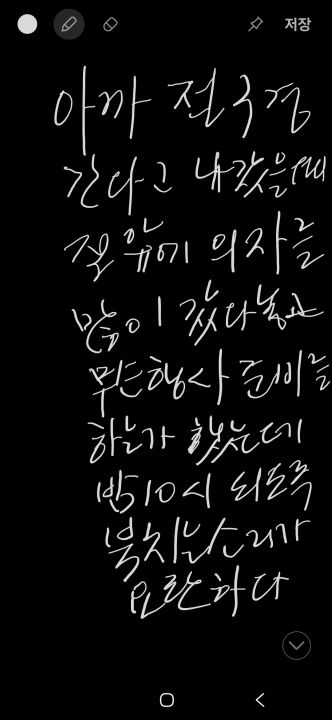 저장
아까 전국경
간다고 내갔을때
절 앞에 의자를
많이 갔다놓고
무슨행사 준비를
하는가 했는데
밤10시 되도록
북치는소리가
요란하다